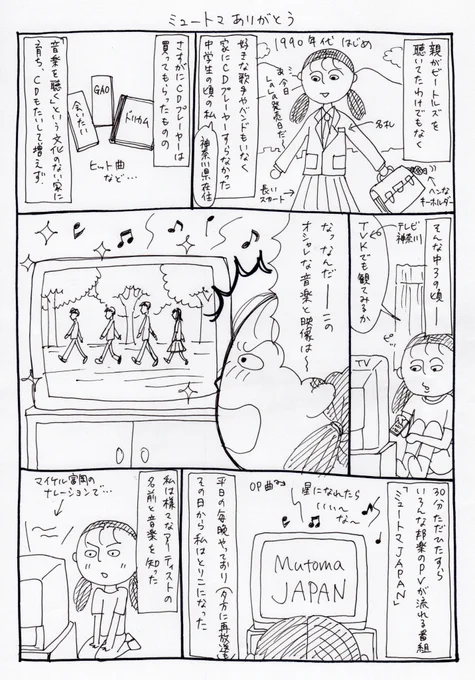 ミュートマ ありがとう
親がビートルズを
聴いてたわけでもなく
1990年代はじめ
あ、今日
LaLaの発売日だ〜
名札
ヘンな
キーホルダー
長い
スカート
好きな歌手やバンドもいなく
家にCDプレーヤーすらなかった
中学生の頃の私
神奈川県在住
さすがにCDプレーヤーは
買ってもらったものの
GAO
会いたい
ドリカム
ヒット曲
など…
「音楽を聴く」という文化のない家に
育ち、CDもたいして増えず
そんな中3の頃―
テレビ
神奈川
TVKでも観てみるか
ピッ
TV
なっなんだ――この
オシャレな音楽と映像は〜
30分ただひたすら
いろんな邦楽のPVが流れる番組
「ミュートマJAPAN」
OP曲
星になれたら
いい〜
な〜
Mutoma
JAPAN
平日の毎晩やっており(夕方に再放送も)
その日から私はとりこになった
私は様々なアーティストの
名前と音楽を知った
マイケル富岡の
ナレーションで…